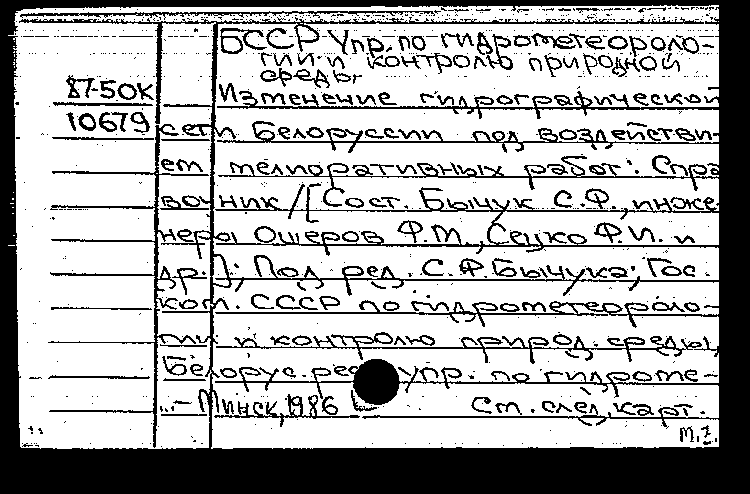 БССР Упр. по гидрометеороло-
гии и контролю природной
среды
87-50К Изменение гидрографической
10679 сети Белоруссии под воздействи-
ем мелиоративных работ: Спра
вочник /[Сост. Бычук С.Ф., инже-
неры Ошеров Ф.М., Сецко Ф.И. и
др.]; Под ред. С.Ф. Бычука; Гос.
ком. СССР по гидрометеороло-
гии и контролю природ. среды,
Белорус. упр. по гидроме-
...- Минск, 1986 См. след. карт.
м.г.